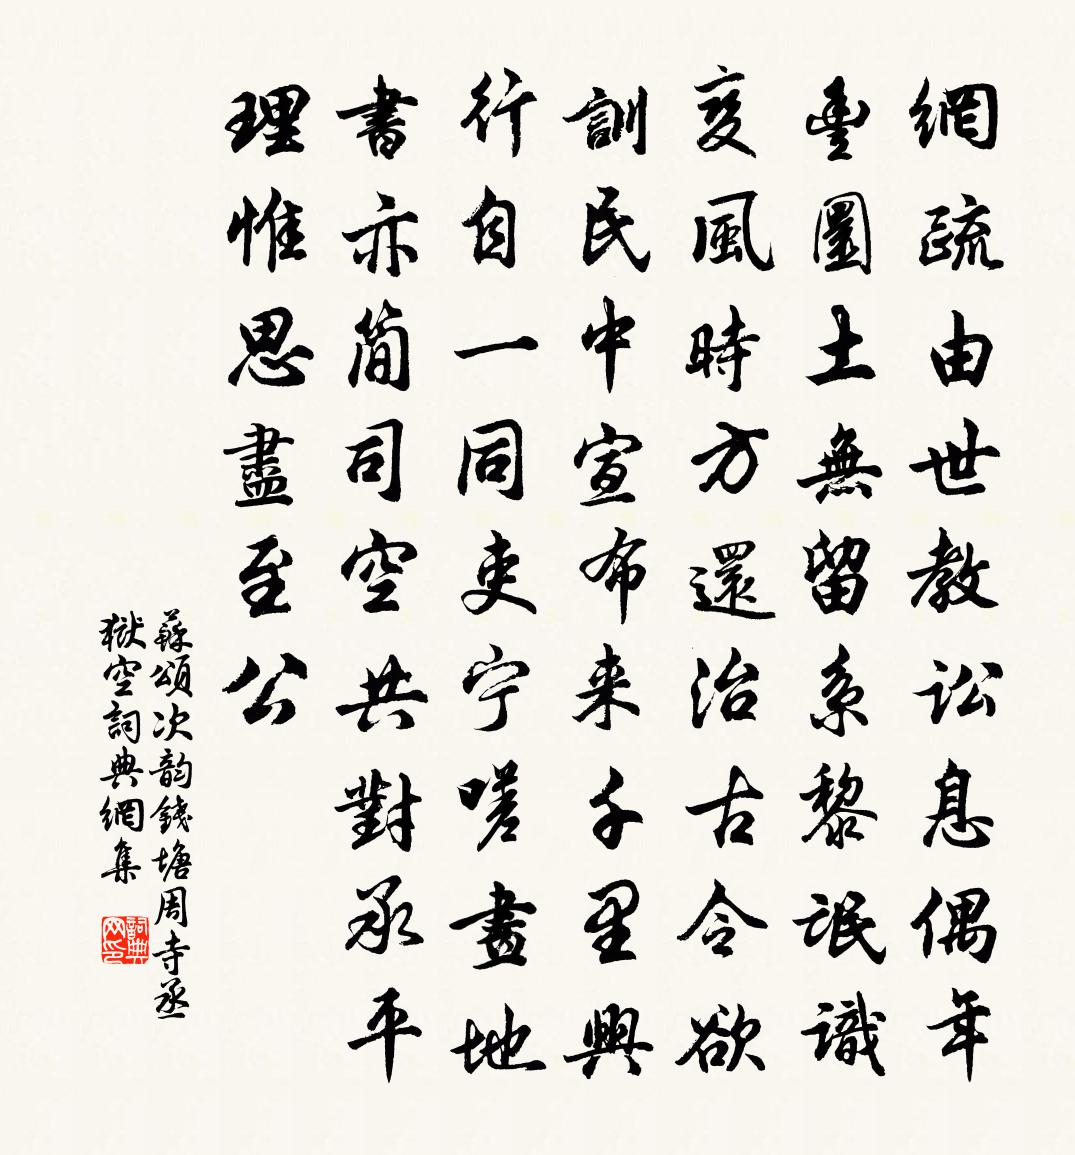 網疏由世教訟息偶年
豐圜土無留系黎氓識
变風時方還治古令欲
訓民中宣布来千里興
行自一同吏宁嗟畫地
書亦簡司空共對承平
理惟思盡至公
蘇頌次韵錢塘周寺丞
獄空詞典網集
詞典网印